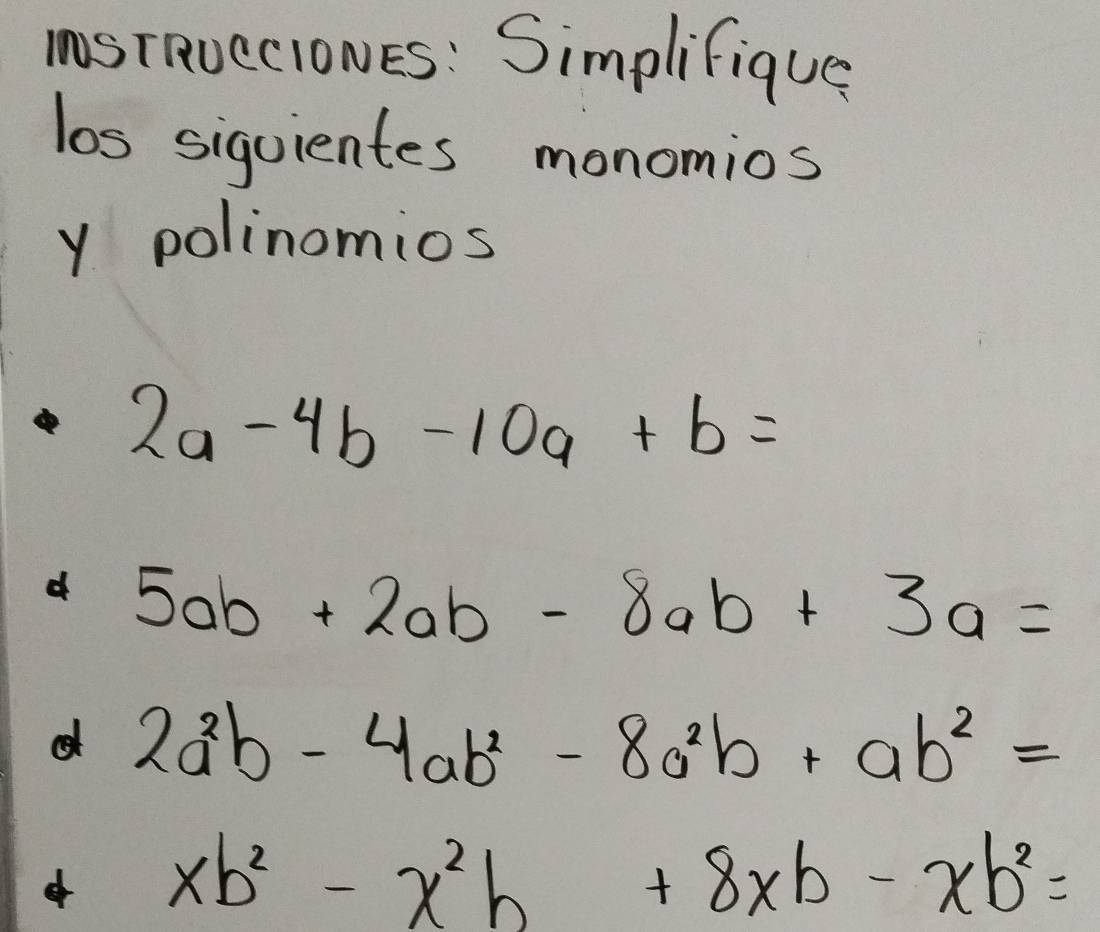 INSTRUCCIONES: Simplifique
los siguientes monomios
y polinomios
• 2a - 4b - 10a + b =
• 5ab + 2ab - 8ab + 3a =
• 2a²b - 4ab² - 8a²b + ab² =
• xb² - x²b + 8xb - xb² =